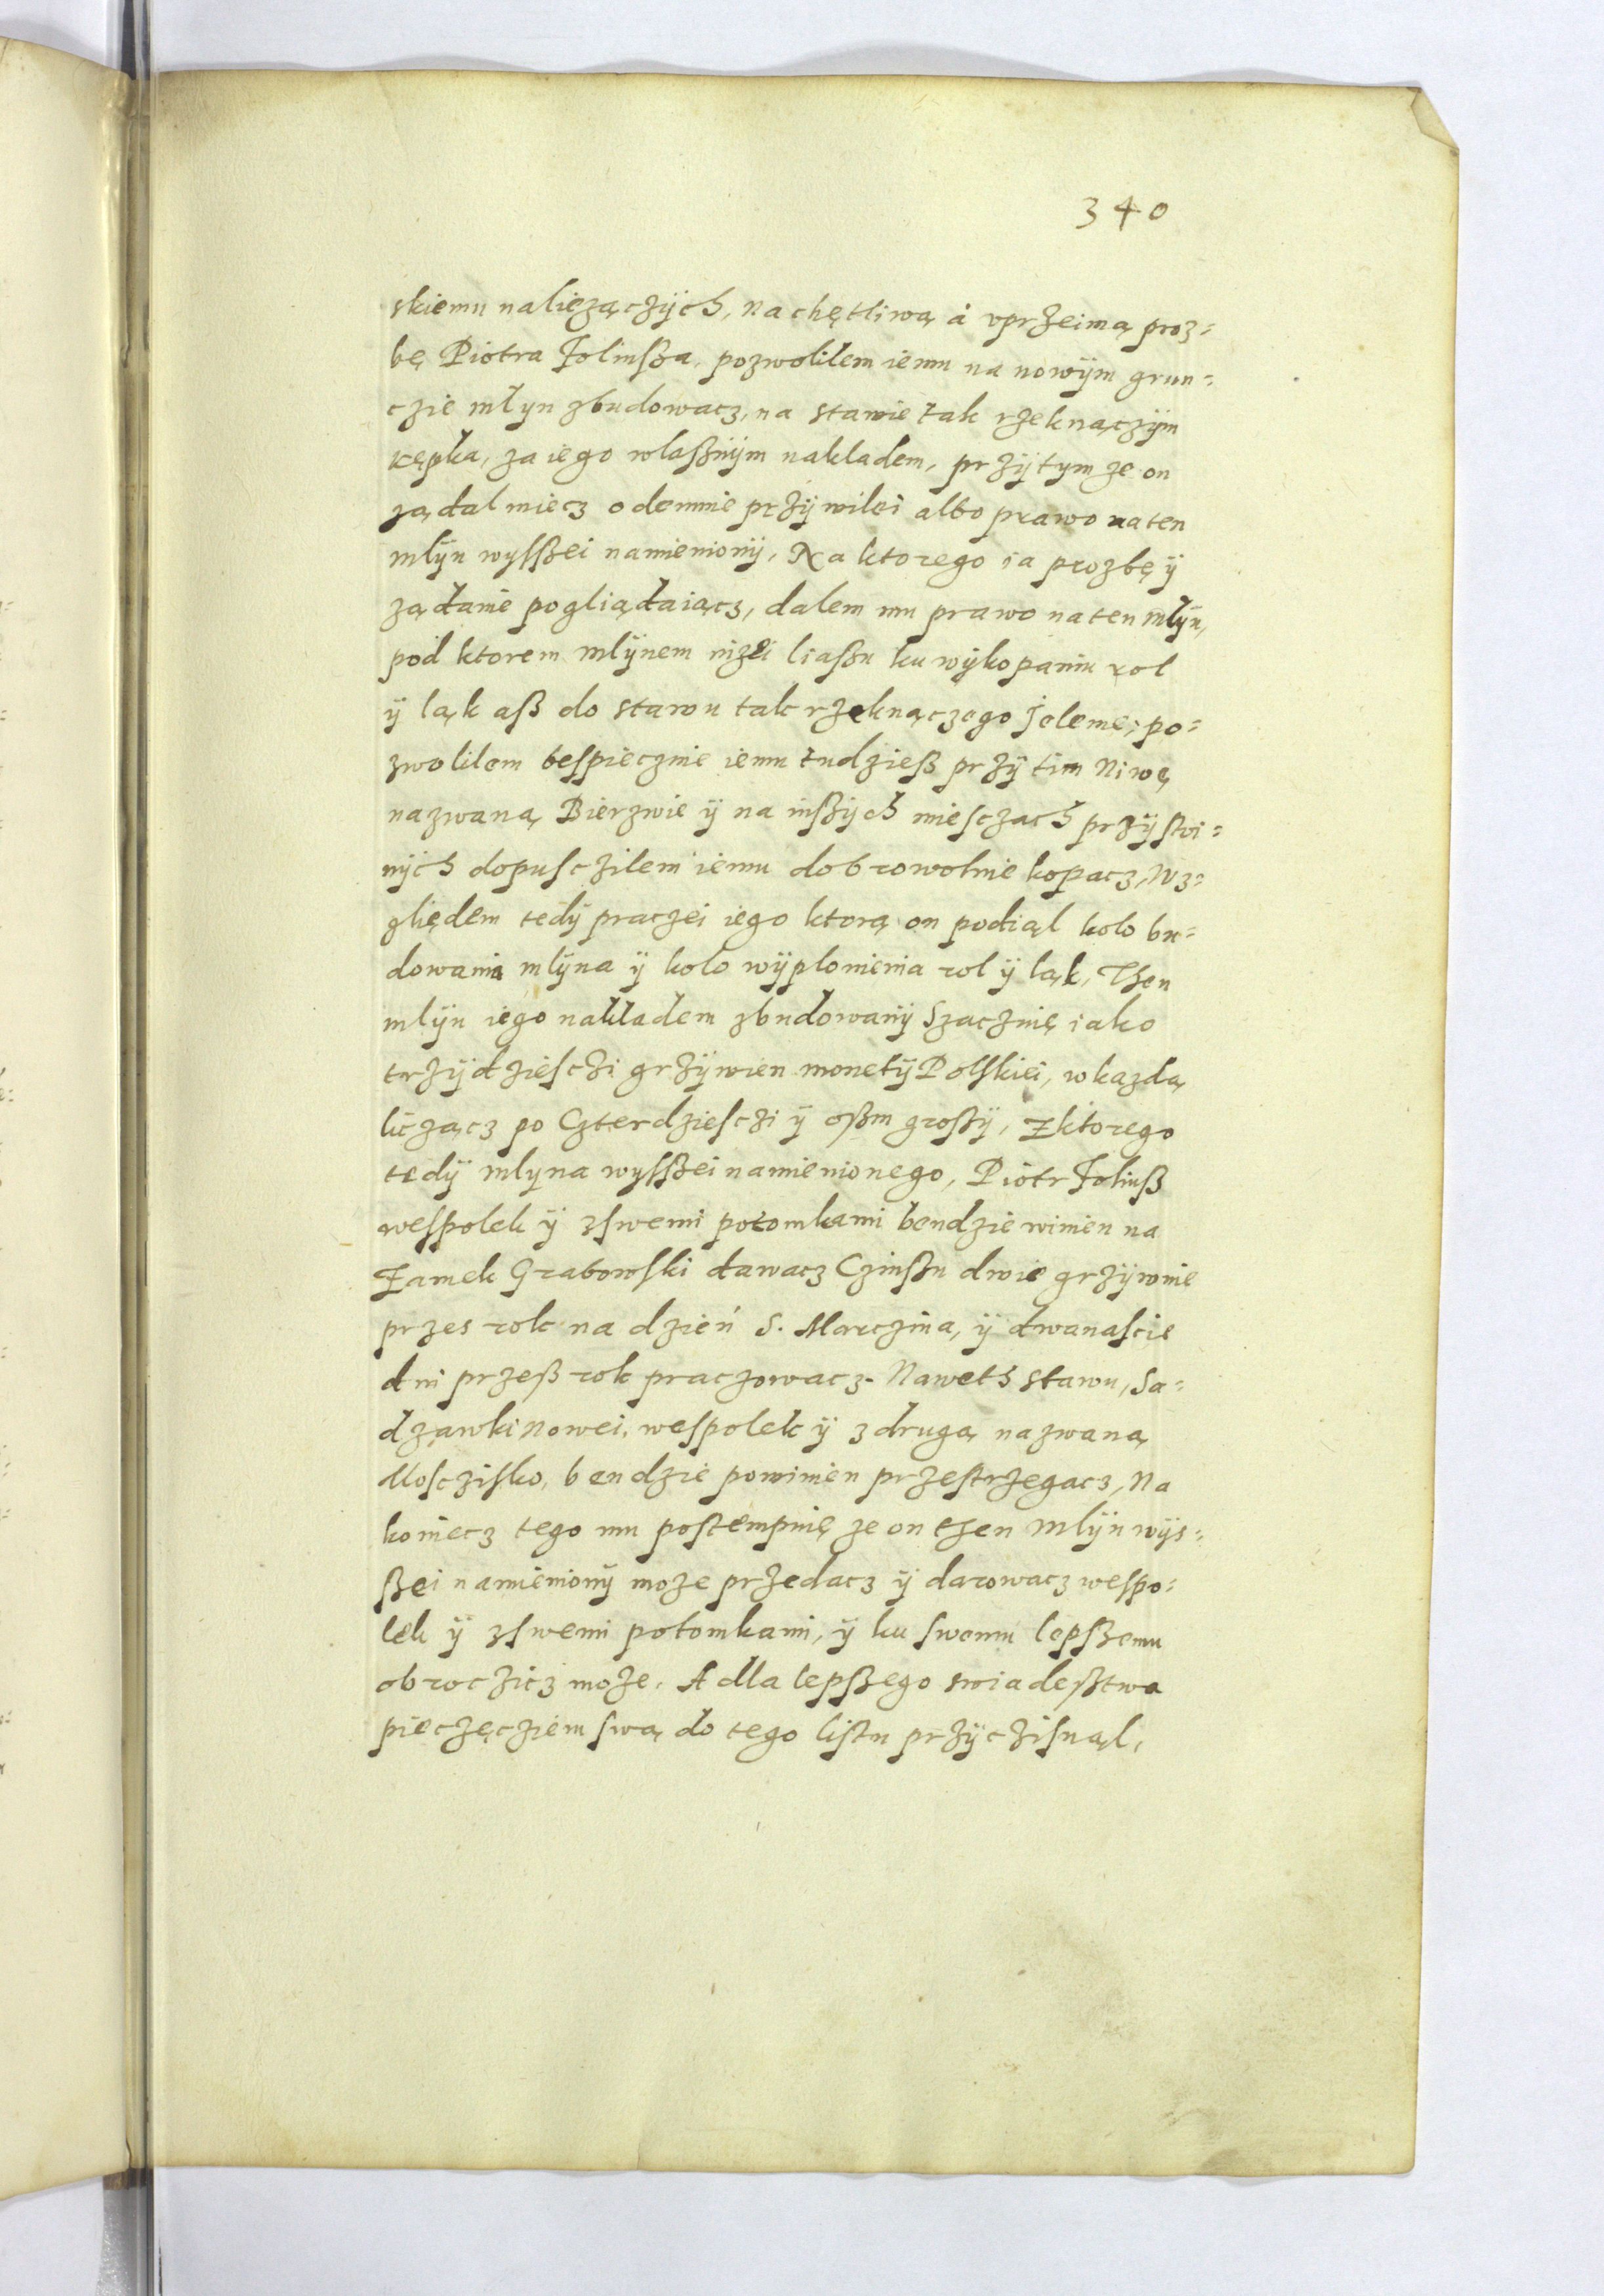 340
skiemu naliezączÿch, na chętliwą á vprzeimą proz=
bę Piotra Joliußa, pozwolilem iemu na nowÿm grun=
czie młyn zbudowacz, na stawie tak rzeknączÿm
Kępka, za iego wlaßnÿm nakladem, przÿtym ze on
ządal miecz odemnie przÿwilei albo prawo na ten
mlÿn wyſßei namienionÿ, Na ktorego ia prozbę ÿ
ządanie pogliądaiącz, dalem mu prawo na ten mlÿn,
pod ktorem mlÿnem nizei liaßu ku wÿkopaniu rol
ÿ ląk aß do stawu tak rzeknączego Jeleme; po=
zwolilem beſpiecznie iemu tudzieß przÿ tim Niwę
nazwaną Bierzwie ÿ na inßÿch mieſczach przÿſtoi=
nÿch dopuſczilem iemu dobrowolnie kopacz, Wz=
ględem tedÿ praczei iego ktorą on podiąl kolo bu=
dowania mlÿna ÿ kolo wÿplonienia rol ÿ ląk, Then
mlÿn iego nakladem zbudowanÿ Szacznię iako
trzÿdzieſczi grzÿwien monetÿ Polſkiei, w kazdą
licząc​z po Czterdzieſczi ÿ oßm großÿ, Z ktorego
tedÿ mlyna wyſßei namienionego, Piotr Joliuß
weſpolek ÿ zſwemi potomkami bendzie winien na
Zamek Grabowſki dawacz Czinßu dwie grzÿwnie
przes rok na dzień S. Marczina, ÿ dwanaſcie
dni przeß rok praczowacz. Naweth stawu, Sa=
dzawki nowei, weſpolek ÿ z drugą nazwaną
Moſcziſko, bendzie powinien przeſtrzegacz, Na
koniecz tego mu poſtempnię ze on then Mlÿn wÿs=
ßei namienionÿ moze przedacz ÿ darowacz weſpo=
lek ÿ zſwemi potomkami, ÿ ku ſwemu lepſzemu
obroczicz moze. A dla lepßego swiadeßtwa
pieczęcziem ſwą do tego liſtu przÿcziſnąl,